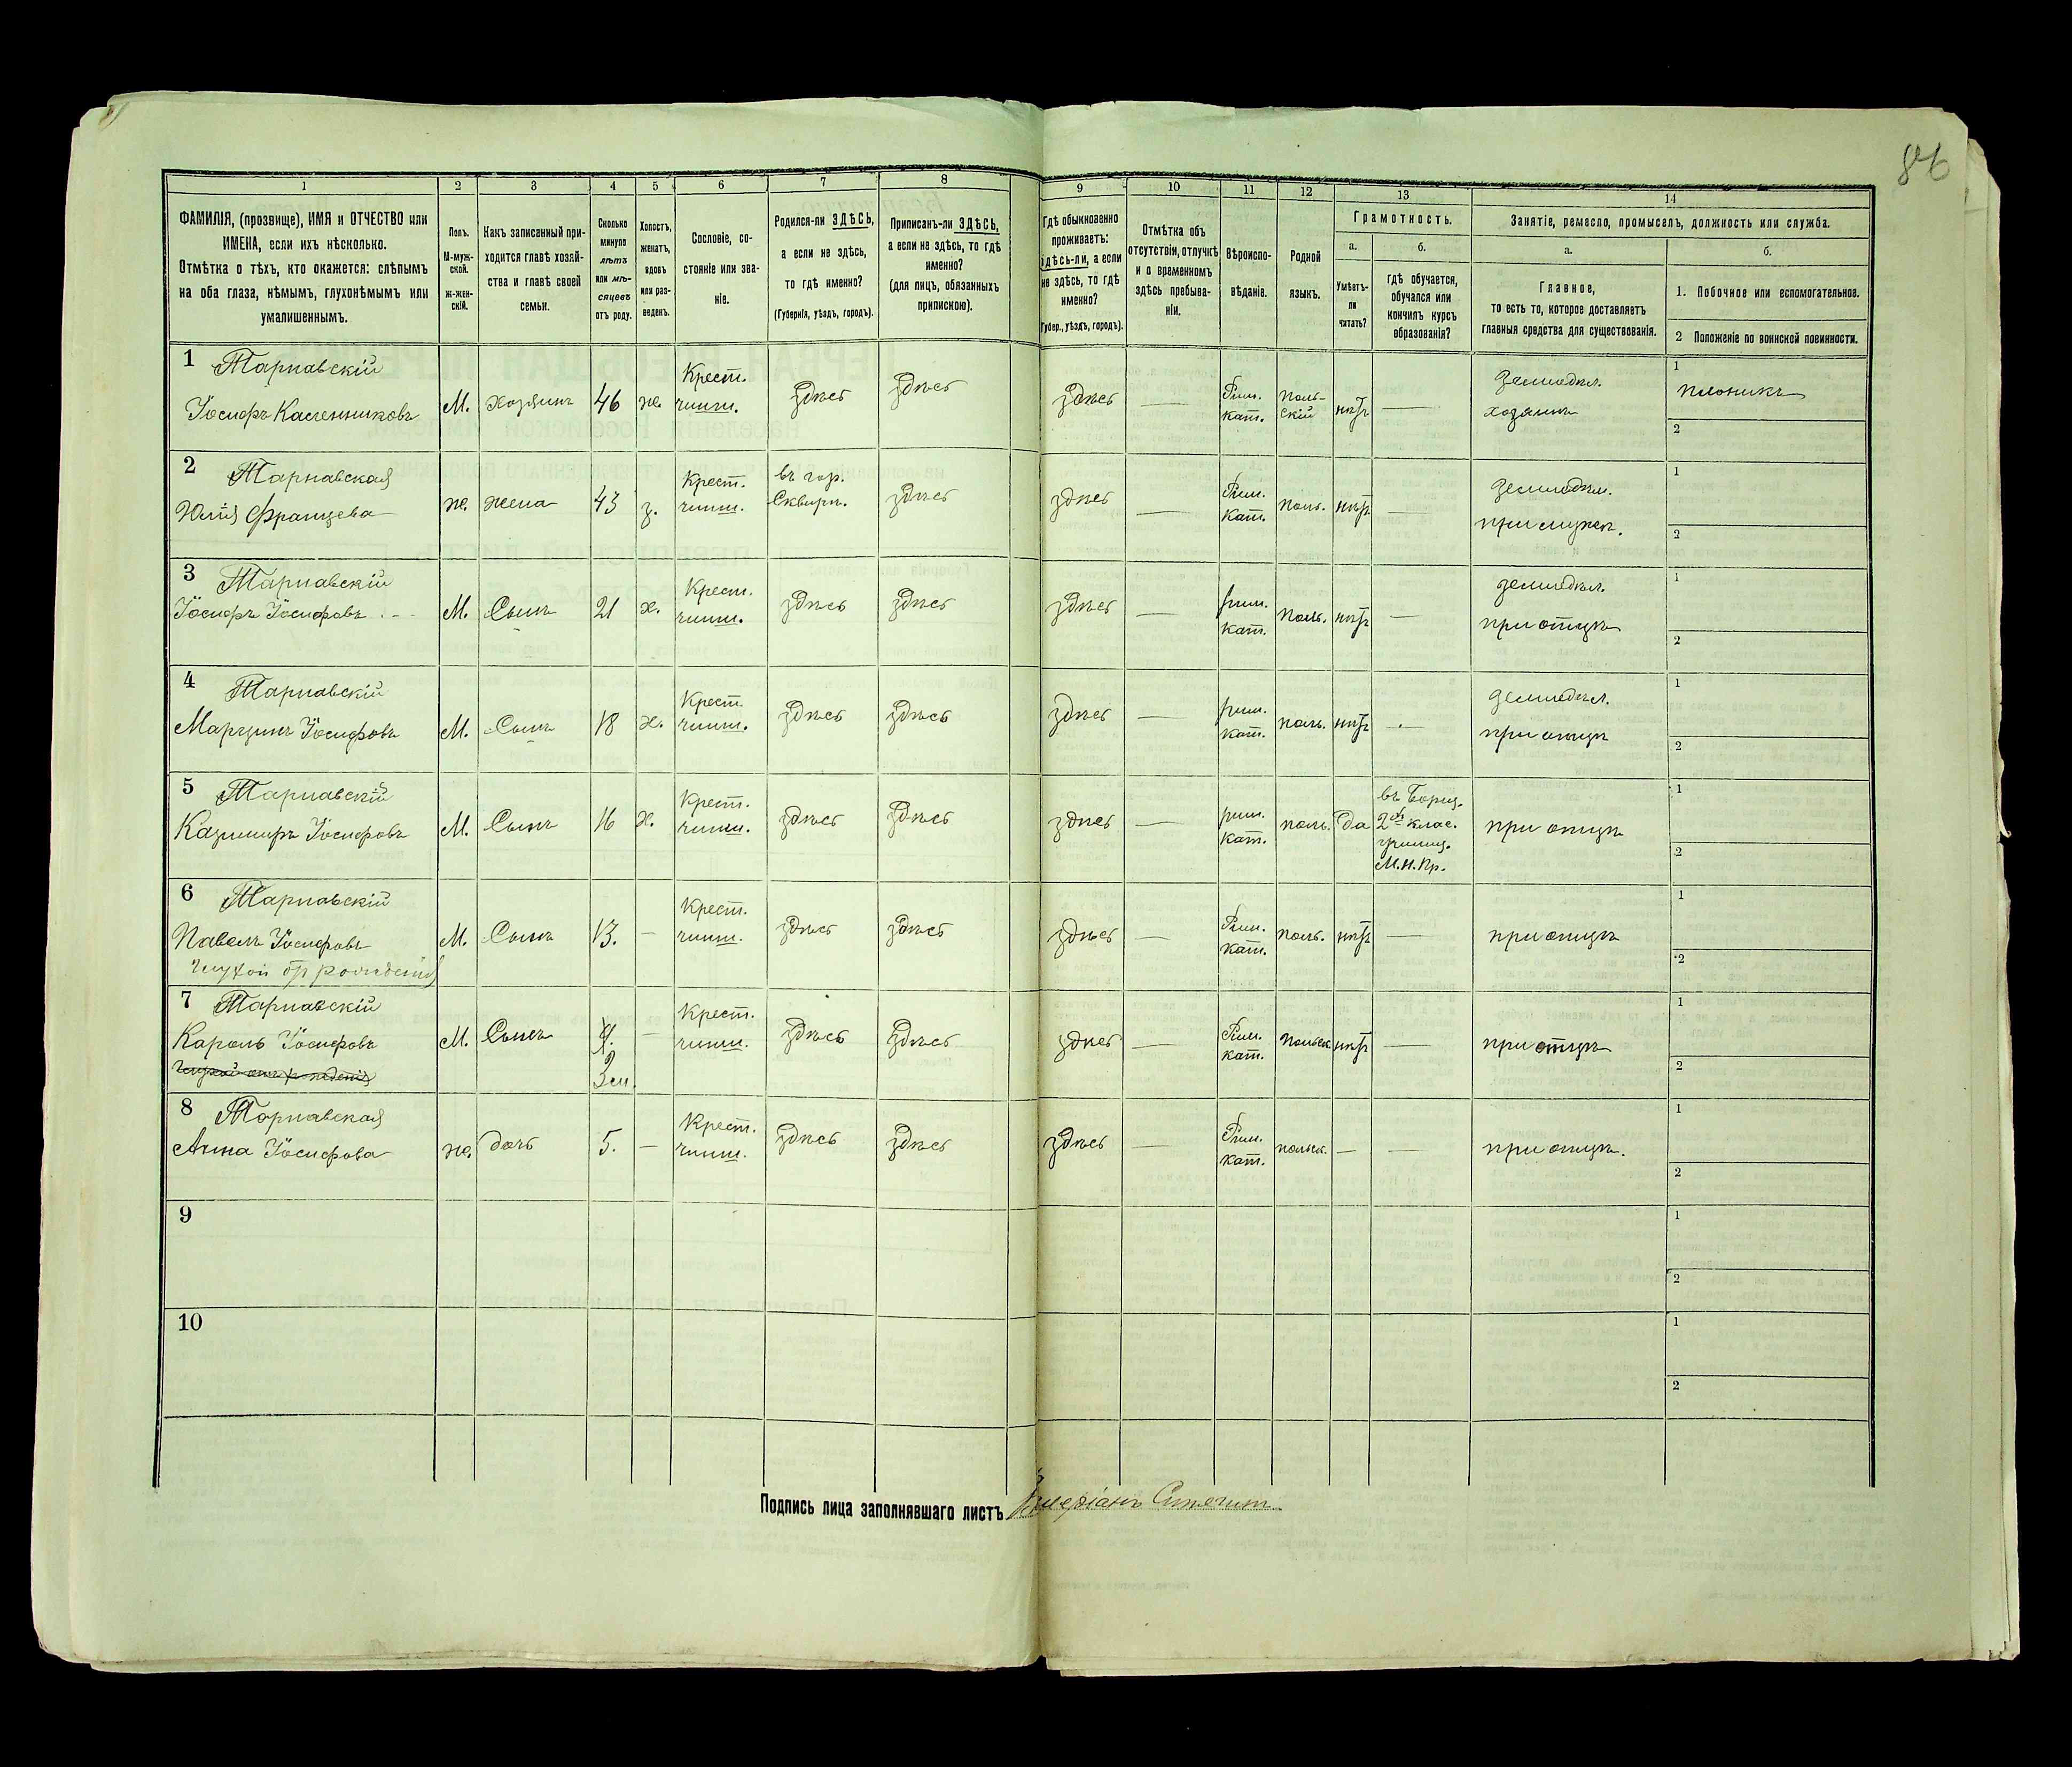 86
1 2 3 4 5 6 7 8 9 10 11 12 13 14
ФАМИЛІЯ, (прозвище), ИМЯ и ОТЧЕСТВО или
ИМЕНА, если ихъ нѣсколько.
Отмѣтка о тѣхъ, кто окажется: слѣпымъ
на оба глаза, нѣмымъ, глухонѣмымъ или
умалишеннымъ.
Полъ.
М-муж-
ской.
Ж-жен-
скій.
Какъ записанный при-
ходится главѣ хозяй-
ства и главѣ своей
семьи.
Сколько
минуло
лѣтъ
или мѣ-
сяцевъ
отъ роду.
Холостъ,
женатъ,
вдовъ
или раз-
веденъ.
Сословіе, со-
стояніе или зва-
ніе.
Родился-ли ЗДѢСЬ,
а если не здѣсь,
то гдѣ именно?
(Губернія, уѣздъ, городъ).
Приписанъ-ли ЗДѢСЬ,
а если не здѣсь, то гдѣ
именно?
(для лицъ, обязанныхъ
припискою).
Гдѣ обыкновенно
проживаетъ:
здѣсь-ли, а если
не здѣсь, то гдѣ
именно?
(Губер., уѣздъ, городъ).
Отмѣтка объ
отсутствіи, отлучкѣ
и о временномъ
здѣсь пребыва-
ніи.
Вѣроиспо-
вѣданіе.
Родной
языкъ.
Грамотность.
а.
Умѣетъ-
ли
читать?
б.
гдѣ обучается,
обучался или
кончилъ курсъ
образованія?
Занятіе, ремесло, промыселъ, должность или служба.
а.
Главное,
то есть то, которое доставляетъ
главныя средства для существованія.
б.
1. Побочное или вспомогательное.
2 Положеніе по воинской повинности.
1 Тарнавскій
Іосифъ Касленниковъ М. хозяинъ 46 ж. Крест. чинш. здѣсь здѣсь здѣсь — Рим. кат. Поль-скій нѣтъ — земледѣл. хозяинъ 1 плотникъ 2
2 Тарнавская
Юлія Францева ж. жена 43 з. Крест. чинш. въ гор. Сквирѣ. здѣсь здѣсь — Рим. Кат. Поль. нѣтъ — земледѣл. при мужѣ. 1 2
3 Тарнавскій
Іосифъ Іосифовъ М. Сынъ 21 х. Крест. чинш. здѣсь здѣсь здѣсь — рим. кат. Поль. нѣтъ — земледѣл. при отцѣ 1 2
4 Тарнавскій
Марцинъ Іосифовъ М. Сынъ 18 х. Крест. чинш. здѣсь здѣсь здѣсь — рим. кат. поль. нѣтъ — земледѣл. при отцѣ 1 2
5 Тарнавскій
Казимиръ Іосифовъ М. Сынъ 16 х. Крест. чинш. здѣсь здѣсь здѣсь — рим. кат. поль. Да въ Борщ. 2хъ клас. училищ. М.Н.Пр. при отцѣ 1 2
6 Тарнавскій
Павелъ Іосифовъ М. Сынъ 13. — Крест. чинш. здѣсь здѣсь здѣсь — Рим. кат. поль. нѣтъ — при отцѣ 1 2
глухой отъ рожденія
7 Тарнавскій
Кароль Іосифовъ М. Сынъ 9. — Крест. чинш. здѣсь здѣсь здѣсь — Рим. кат. польск. нѣтъ — при отцѣ 1 2
глухой отъ рожденія
8 Тарнавская
Анна Іосифова ж. дочь 5. — Крест. чинш. здѣсь здѣсь здѣсь — Рим. кат. польск. — — при отцѣ. 1 2
9 1 2
10 1 2
Подпись лица заполнявшаго листъ